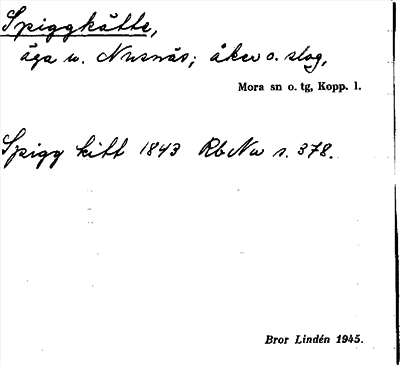 Spiggkätte,
äga u. Nusnäs; åker o. slog,
Mora sn o. tg, Kopp. l.
Spigg kitt 1843 RbNu s. 378.
Bror Lindén 1945.